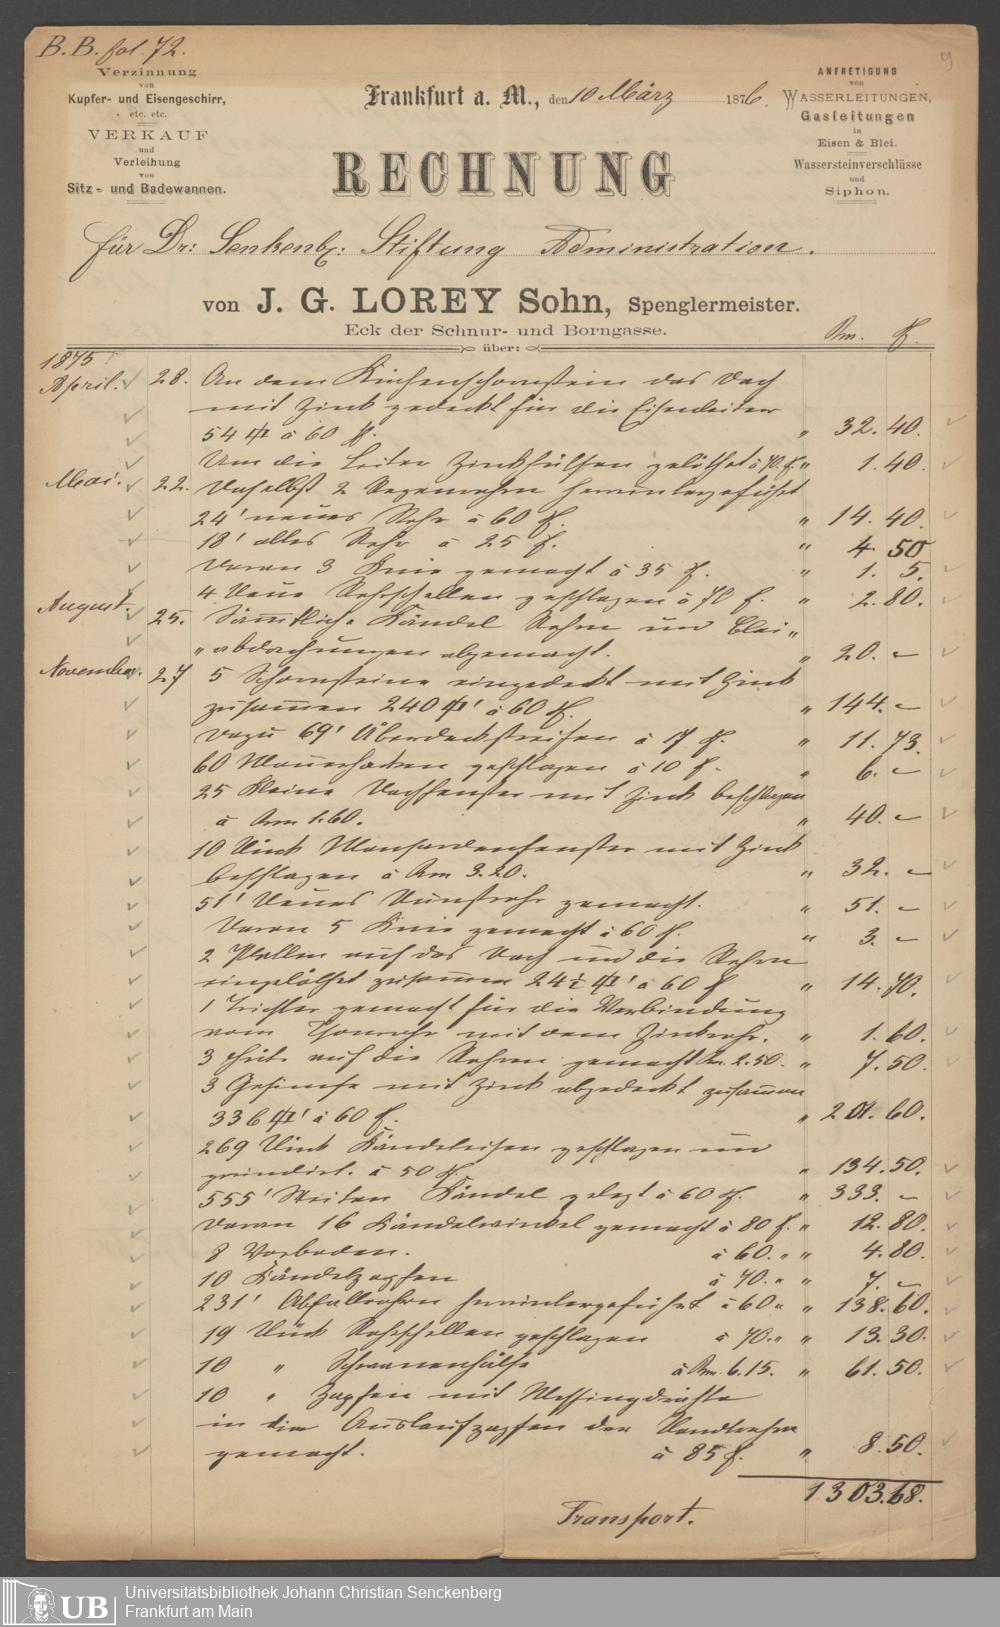 B. B. fol. 72.
9
Verzinnung
von
Kupfer- und Eisengeschirr,
etc. etc.
VERKAUF
und
Verleihung
von
Sitz- und Badewannen.
Frankfurt a. M., den 10 März 1876.
ANFRETIGUNG
von
WASSERLEITUNGEN,
Gasleitungen
in
Eisen & Blei.
Wassersteinverschlüsse
und
Siphon.
RECHNUNG
für Dr: Senkenbg: Stiftung Administration.
von J. G. LOREY Sohn, Spenglermeister.
Eck der Schnur- und Borngasse.
über:
Rm. ₰.
1875
April. 28. An dem Küchenschornstein das Dach
mit Zink gedeckt für die Eisenleiter
54 á 60 ₰. " 32. 40.
Um die Leiter Zinkhülsen gelöthet á 70. ₰. " 1. 40.
Mai. 22. Daselbst 2 Regenrohre herruntergeführt
24' neues Rohr á 60 ₰. " 14. 40.
18' altes Rohr á 25 ₰. " 4. 50
Daran 3 Knie gemacht á 35 ₰. " 1. 5.
4 Neue Rohrschellen geschlagen á 70 ₰. " 2. 80.
August. 25. Sämmtliche Kändel Rohre und Blei"
"abdachungen abgemacht. " 20. –
November. 27 5 Schornsteine eingedeckt mit Zink
zusammen 240 á 60 ₰. " 144. –
Dazu 69' Überdeckstreifen á 17 ₰. " 11. 73.
60 Mauerhacken geschlagen á 10 ₰. " 6. –
25 Kleine Dachfenster mit Zink beschlagen
á Rm 1.60. " 40. –
10 Stück Mansardenfenster mit Zink
beschlagen á Rm 3.20. " 32. –
51' Neues Dunstrohr gemacht. " 51. –
Daran 5 Knie gemacht á 60 ₰. " 3. –
2 Platten auf das Dach und die Rohre
eingelöthet zusammen 24½ á 60 ₰ " 14. 70.
1 Trichter gemacht für die Verbindung
vom Thonrohr mit dem Zinkrohr. " 1. 60.
3 Hüte auf die Rohren gemacht Rm. 2.50. " 7. 50.
3 Gesimse mit Zink abgedeckt zusammen
336 á 60 ₰. " 201. 60.
269 Stück Kändeleisen geschlagen und
grundirt. á 50 ₰. " 134. 50.
555' Kändel gelegt á 60 ₰. " 333. –
Daran 16 Kändelwinkel gemacht á 80 ₰. " 12. 80.
8 Vorboden. á 60. " " 4. 80.
10 Kändelzapfen á 70. " " 7. –
231' Abfallrohre herruntergeführt á 60 " " 138. 60.
19 Stück Rohrschellen geschlagen á 70. " " 13. 30.
10 " Schwanenhälse á Rm. 6.15. " 61. 50.
10 " Zapfen mit Messingdräthe
in die Auslaufzapfen der
gemacht. á 85 ₰. " 8. 50.
1303. 68.
Transport.
UB
Universitätsbibliothek Johann Christian Senckenberg
Frankfurt am Main